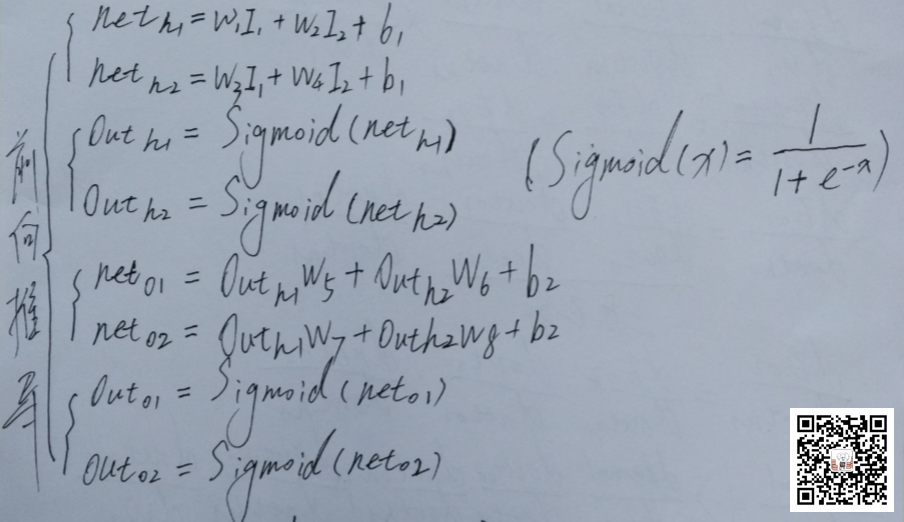 前向推导
net h1 = W1I1 + W2I2 + b1
net h2 = W3I1 + W4I2 + b1
Out h1 = Sigmoid(net h1)
Out h2 = Sigmoid(net h2)
(Sigmoid(x) = 1 / (1 + e^-x))
net o1 = Out h1 W5 + Out h2 W6 + b2
net o2 = Out h1 W7 + Out h2 W8 + b2
Out o1 = Sigmoid(net o1)
Out o2 = Sigmoid(net o2)